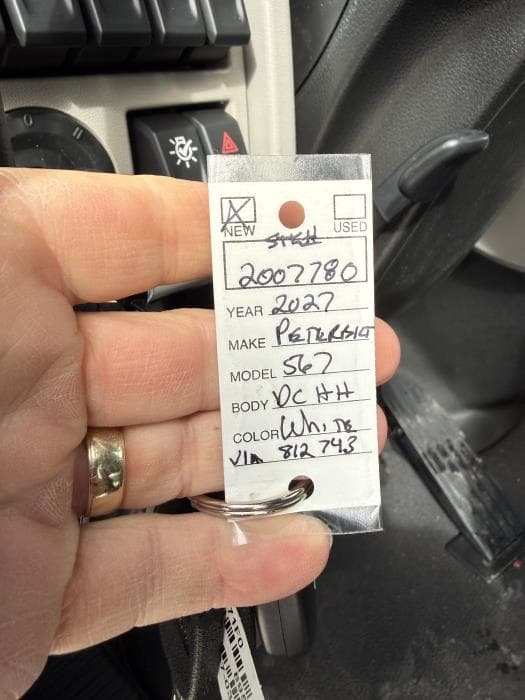 NEW USED
STK#
2007780
YEAR 2027
MAKE PETERBILT
MODEL 567
BODY DC HH
COLOR White
VIN 812743